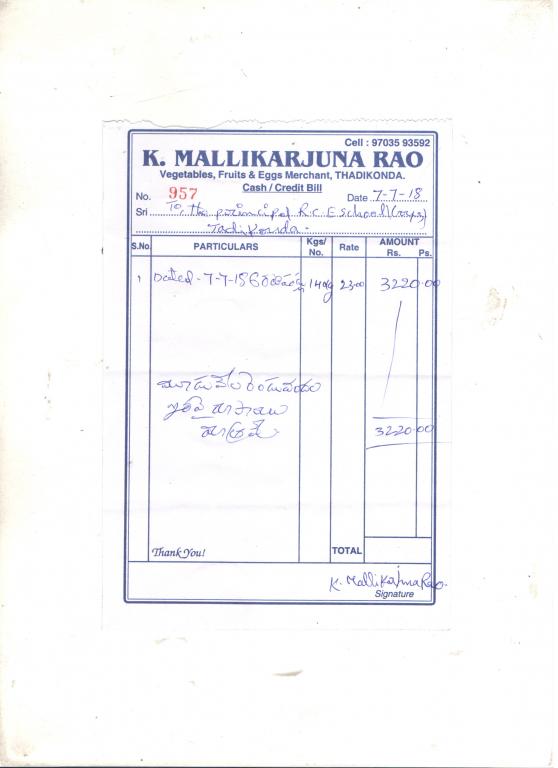 Cell : 97035 93592
K. MALLIKARJUNA RAO
Vegetables, Fruits & Eggs Merchant, THADIKONDA.
Cash / Credit Bill
No. 957 Date 7-7-18
Sri To, the principal R.C.E School (Boys)
Tadikonda.
S.No. PARTICULARS Kgs/ No. Rate AMOUNT Rs. Ps.
1 Dated - 7-7-18 140kg 23.00 3220.00
మూడువేల రెండువందల
ఇరవై రూపాయలు
మాత్రమే
3220.00
Thank You! TOTAL
K. Mallikarjuna Rao.
Signature